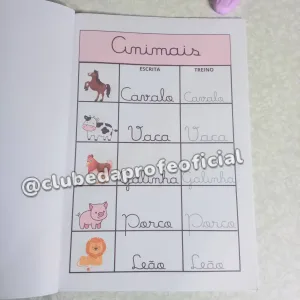 Animais
ESCRITA TREINO
Cavalo Cavalo
Vaca Vaca
@clubedaprofeoficial
Galinha Galinha
Porco Porco
Leão Leão